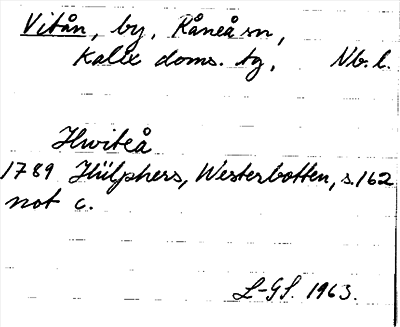 Vitån, by, Råneå sn,
Kalix doms. tg, Nb. l.
Hwiteå
1789 Hülphers, Westerbotten, s. 162
not c.
L-GS. 1963.